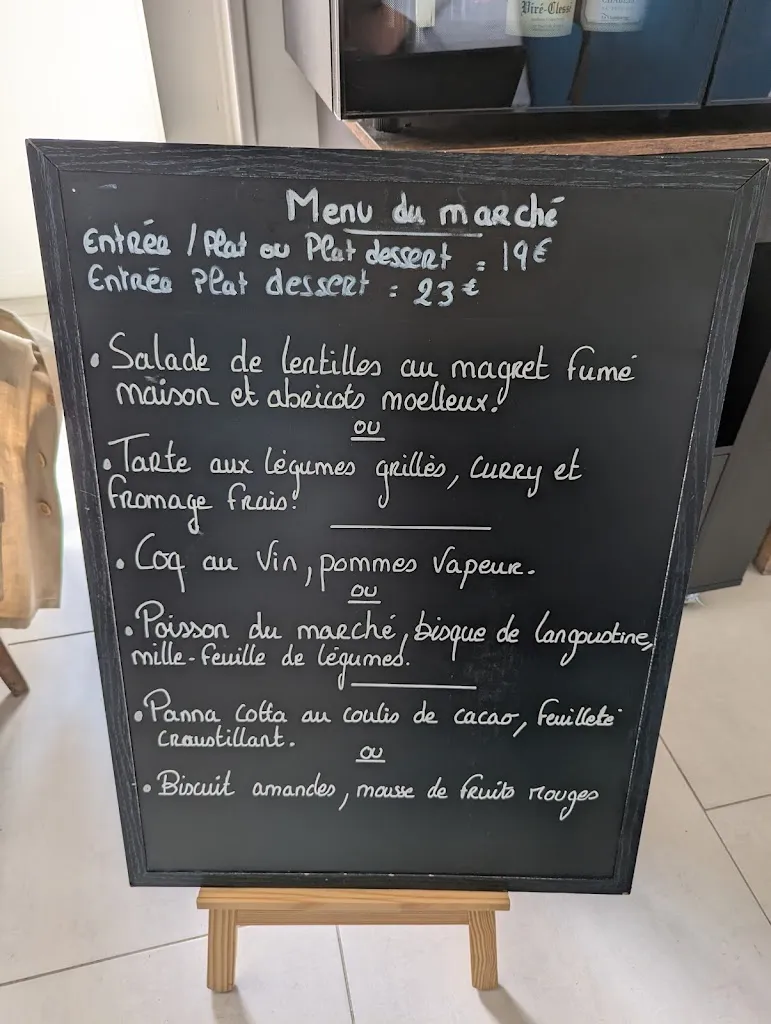 Viré-Clessé
Menu du marché
Entrée / Plat ou Plat dessert = 19€
Entrée Plat dessert = 23€
• Salade de lentilles au magret fumé
maison et abricots moelleux.
ou
• Tarte aux légumes grillés, curry et
fromage frais.
• Coq au vin, pommes vapeur.
ou
• Poisson du marché, bisque de langoustine,
mille-feuille de légumes.
• Panna cotta au coulis de cacao, feuilleté
croustillant.
ou
• Biscuit amandes, mousse de fruits rouges